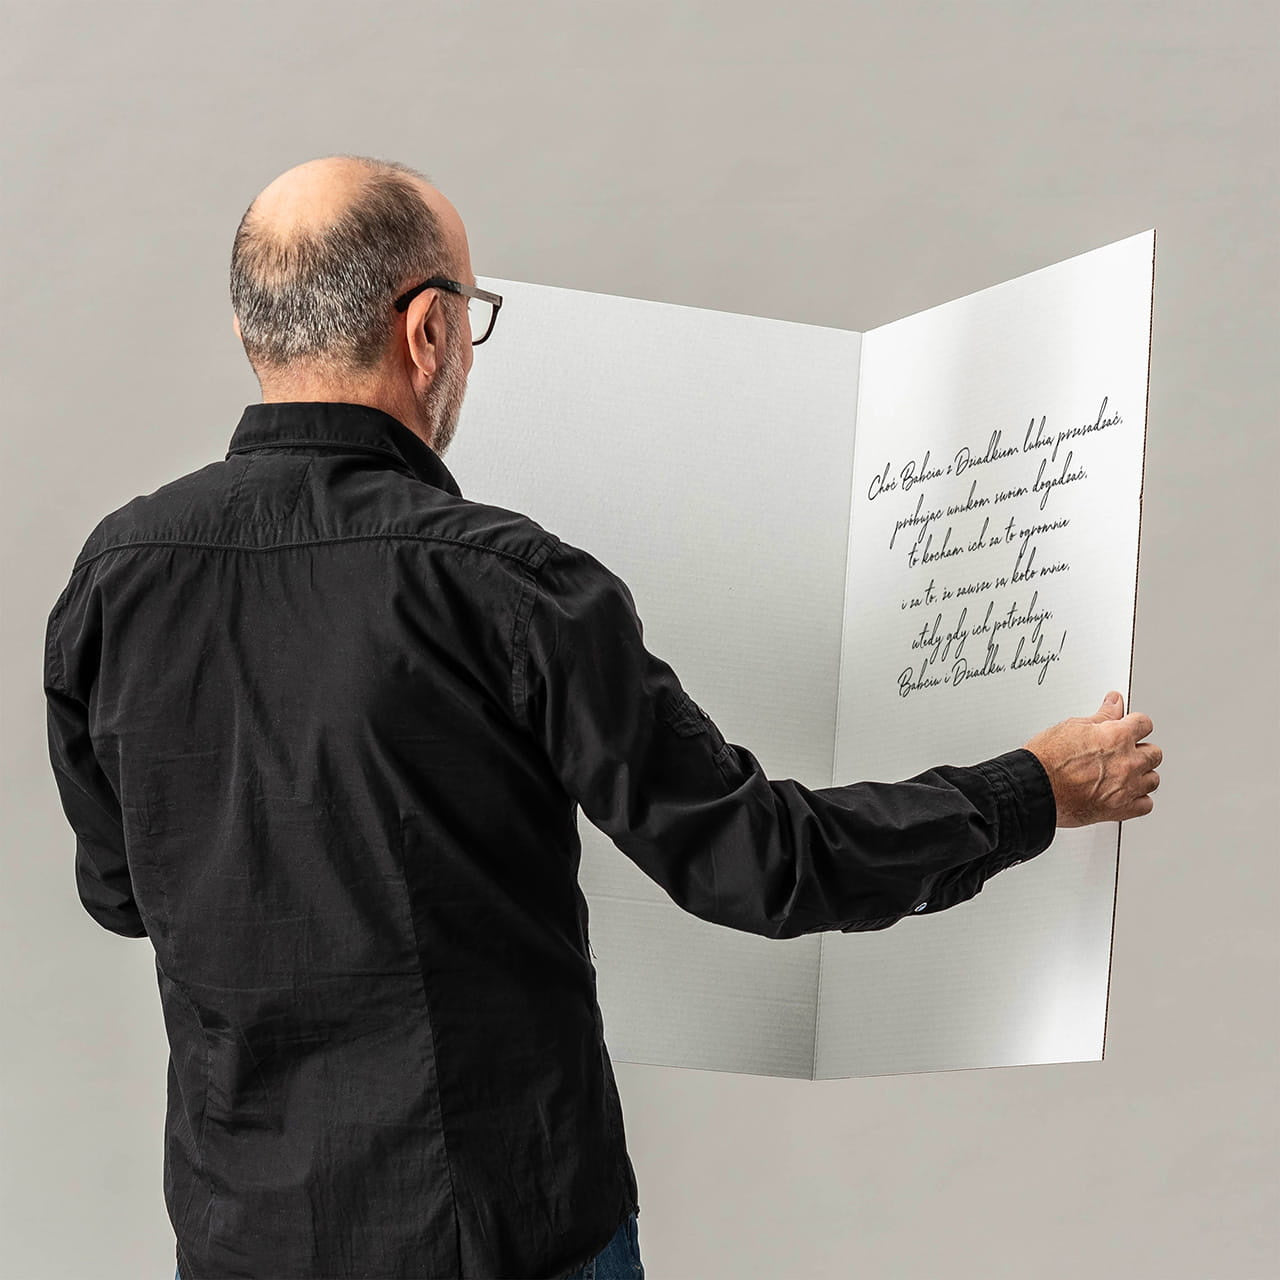 Choć Babcia z Dziadkiem lubią przesadzać,
próbując wnukom swoim dogadzać,
to kocham ich za to ogromnie
i za to, że zawsze są koło mnie,
wtedy gdy ich potrzebuję.
Babciu i Dziadku, dziękuję!